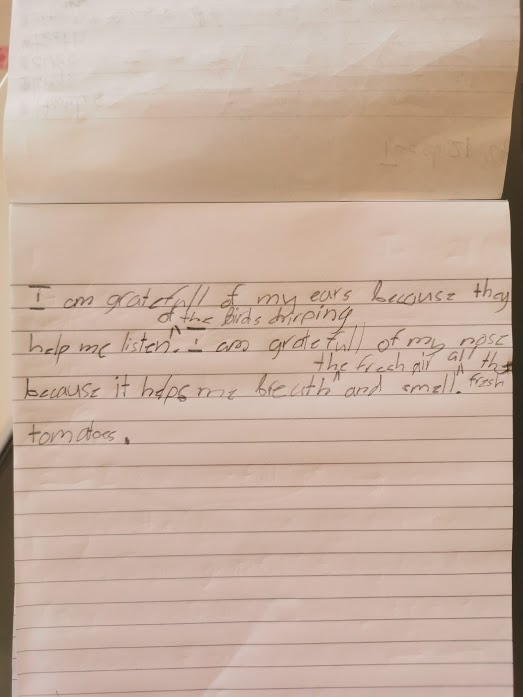 I am gratefull of my ears because they
of the Birds chirping
help me listen. I am gratefull of my nose
the fresh air all the
because it helps me breath and smell. fresh
tomatoes.